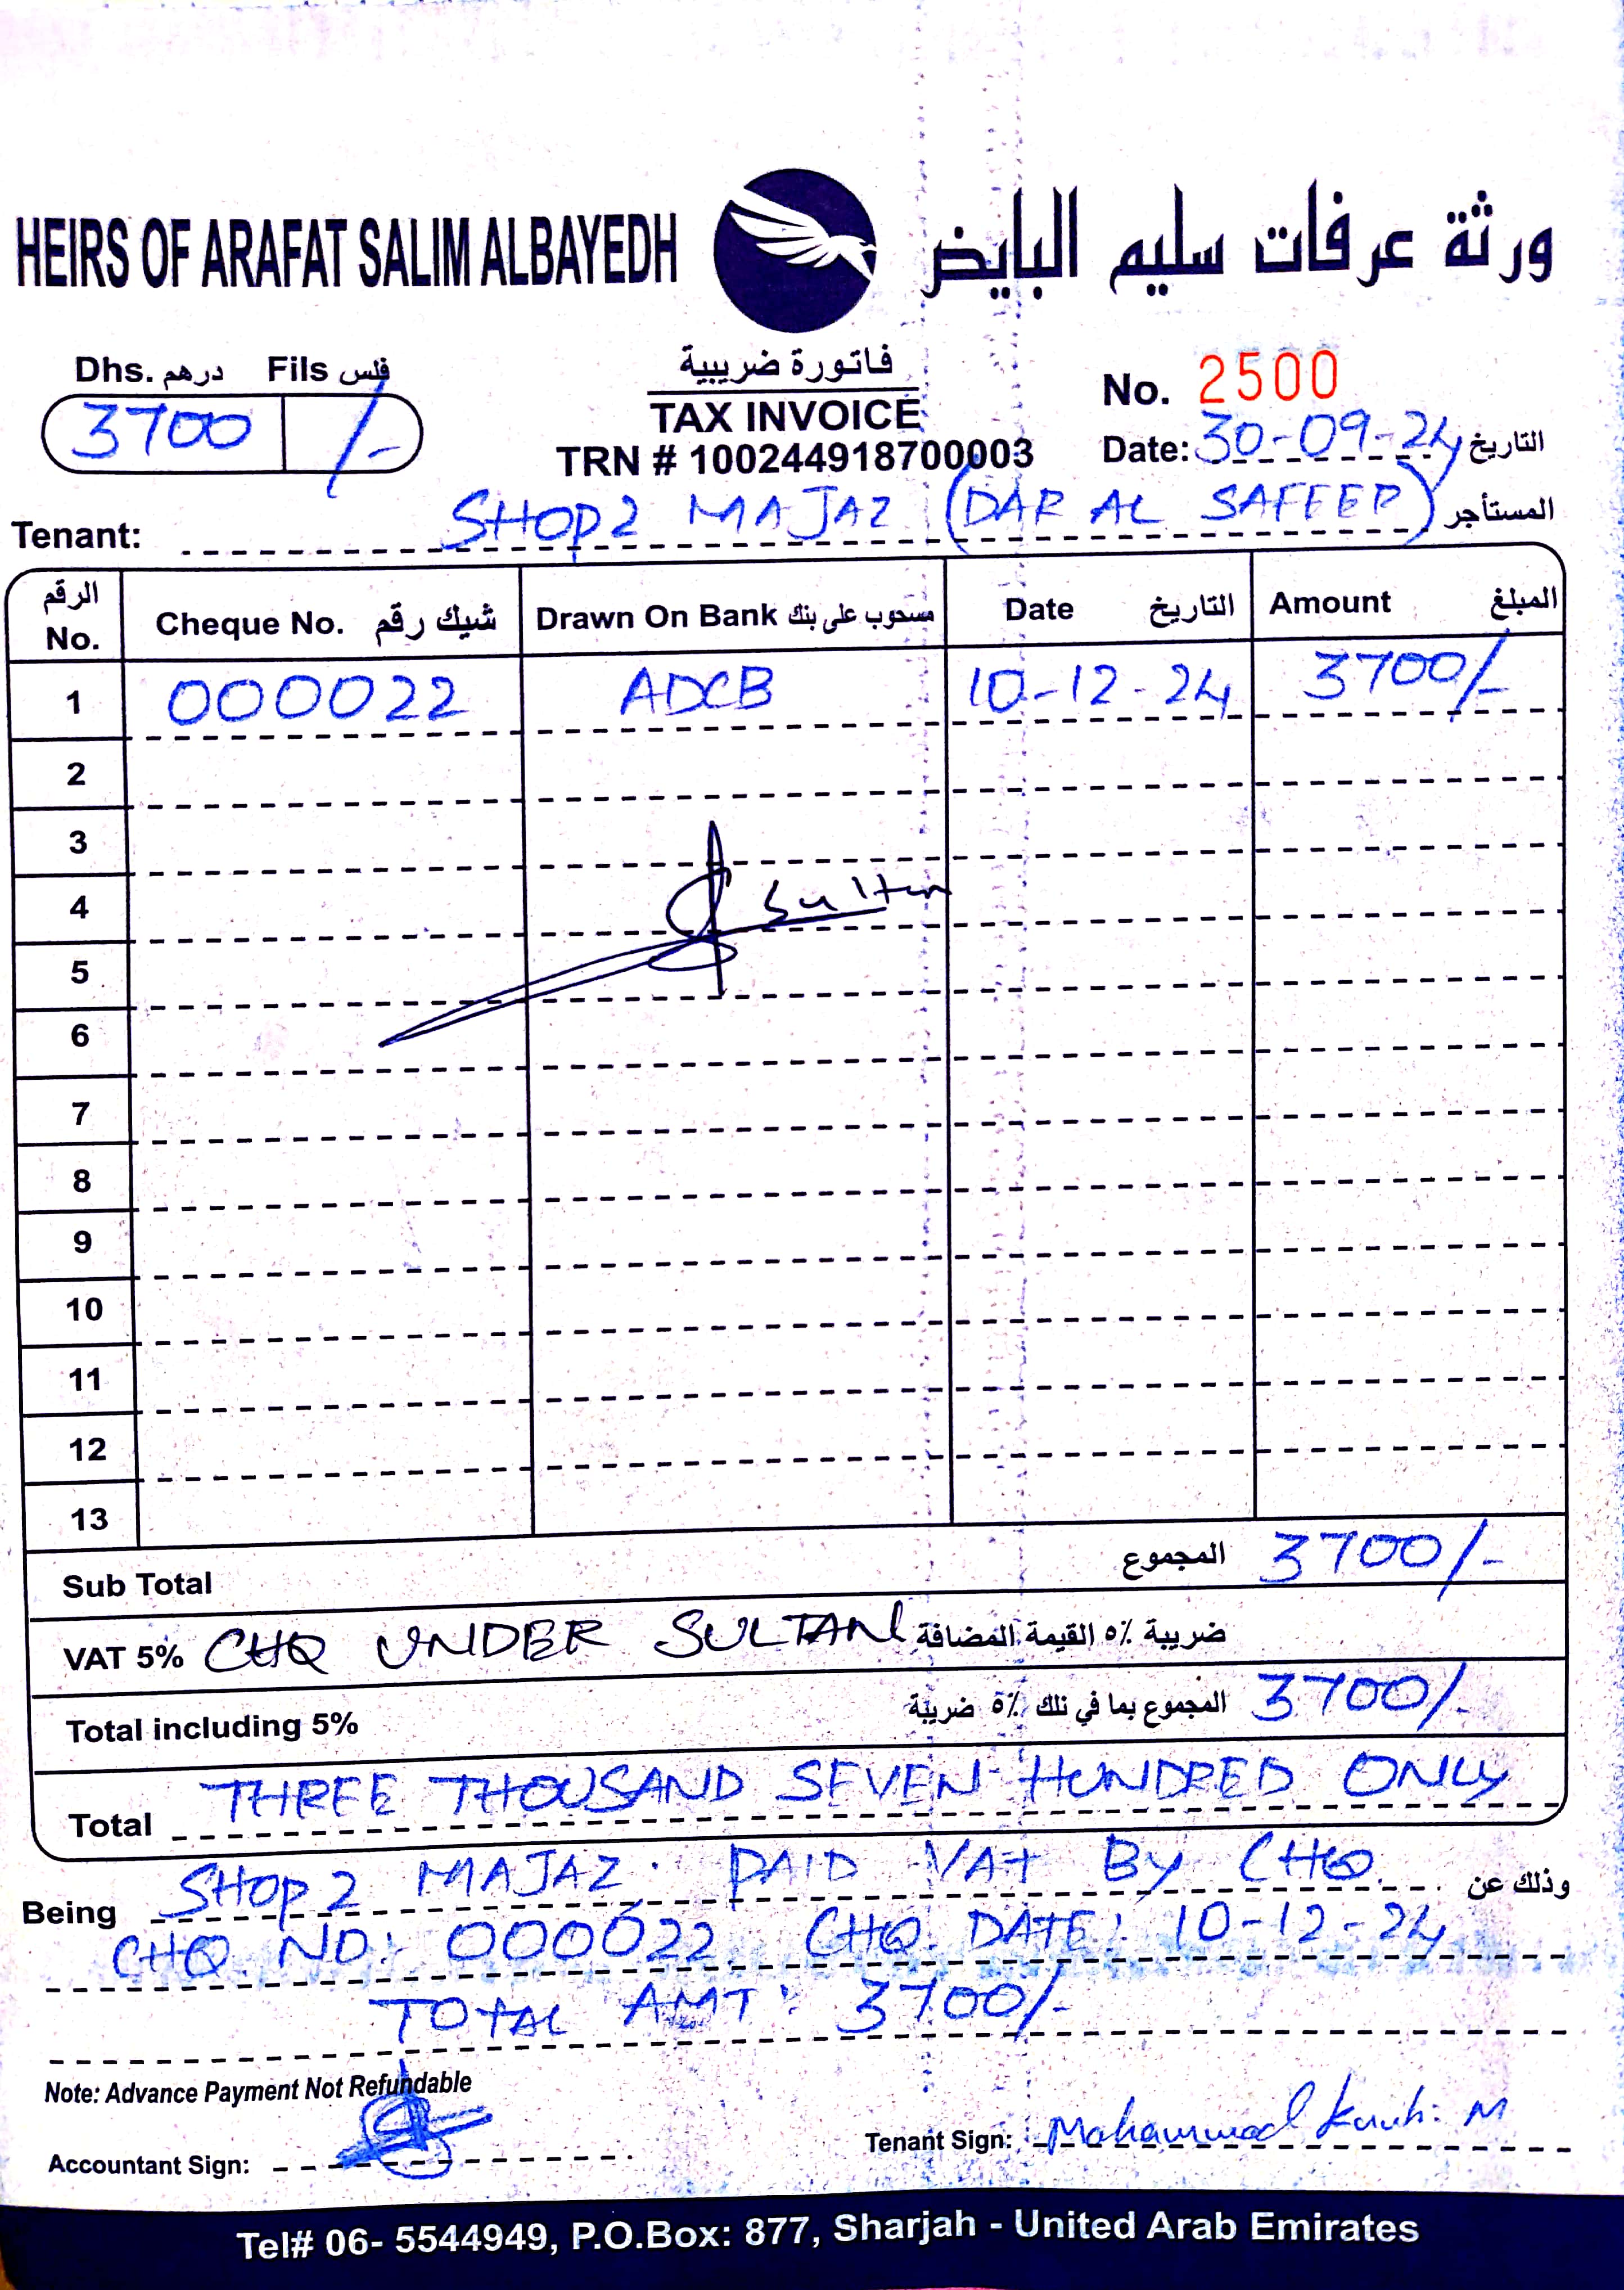 HEIRS OF ARAFAT SALIM ALBAYEDH ورثة عرفات سليم البايض
Dhs. درهم Fils فلس
3700 /-
فاتورة ضريبية
TAX INVOICE
TRN # 100244918700003
No. 2500
Date: 30-09-24 التاريخ
Tenant: SHOP 2 MAJAZ (DAR AL SAFEER) المستأجر
الرقم No. Cheque No. شيك رقم Drawn On Bank مسحوب على بنك Date التاريخ Amount المبلغ
1 000022 ADCB 10-12-24 3700/-
2
3
4 Sultan
5
6
7
8
9
10
11
12
13
Sub Total المجموع 3700/-
VAT 5% CHQ UNDER SULTAN ضريبة ٥٪ القيمة المضافة
Total including 5% المجموع بما في ذلك ٥٪ ضريبة 3700/-
Total THREE THOUSAND SEVEN HUNDRED ONLY
Being SHOP 2 MAJAZ. PAID VAT By CHQ. وذلك عن
CHQ. NO: 000022 CHQ. DATE: 10-12-24
TOTAL AMT: 3700/-
Note: Advance Payment Not Refundable
Accountant Sign:
Tenant Sign: Mohammad M
Tel# 06- 5544949, P.O.Box: 877, Sharjah - United Arab Emirates